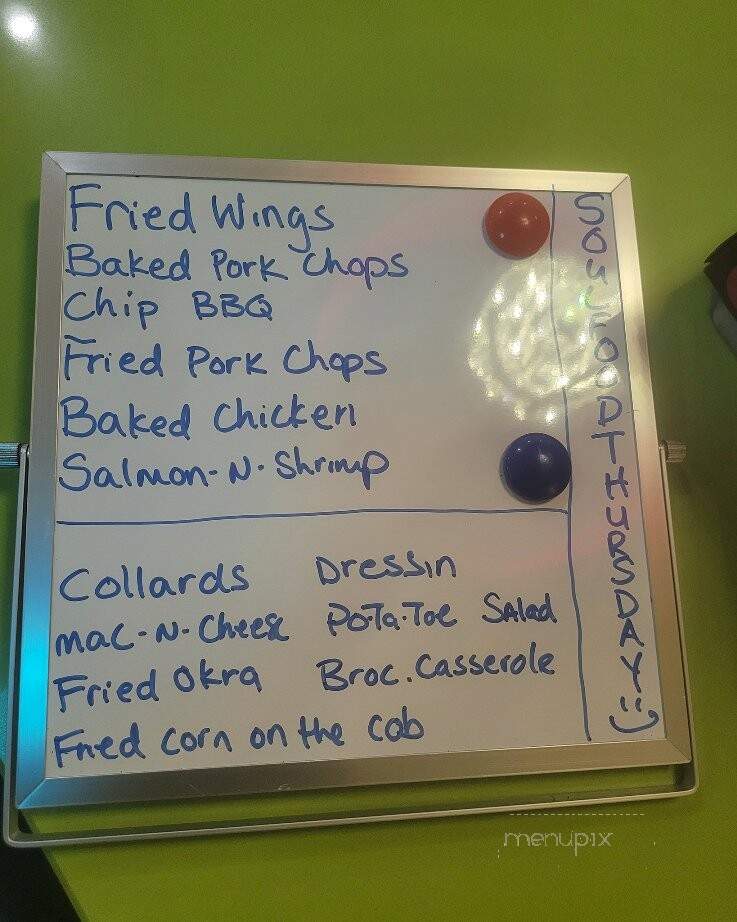 Fried Wings
Baked Pork Chops
Chip BBQ
Fried Pork Chops
Baked Chicken
Salmon-N-Shrimp
Collards
Dressin
Mac-N-Cheese
Po-Ta-Toe Salad
Fried Okra
Broc. Casserole
Fried corn on the cob
SOULFOOD THURSDAY!! :)
menupix